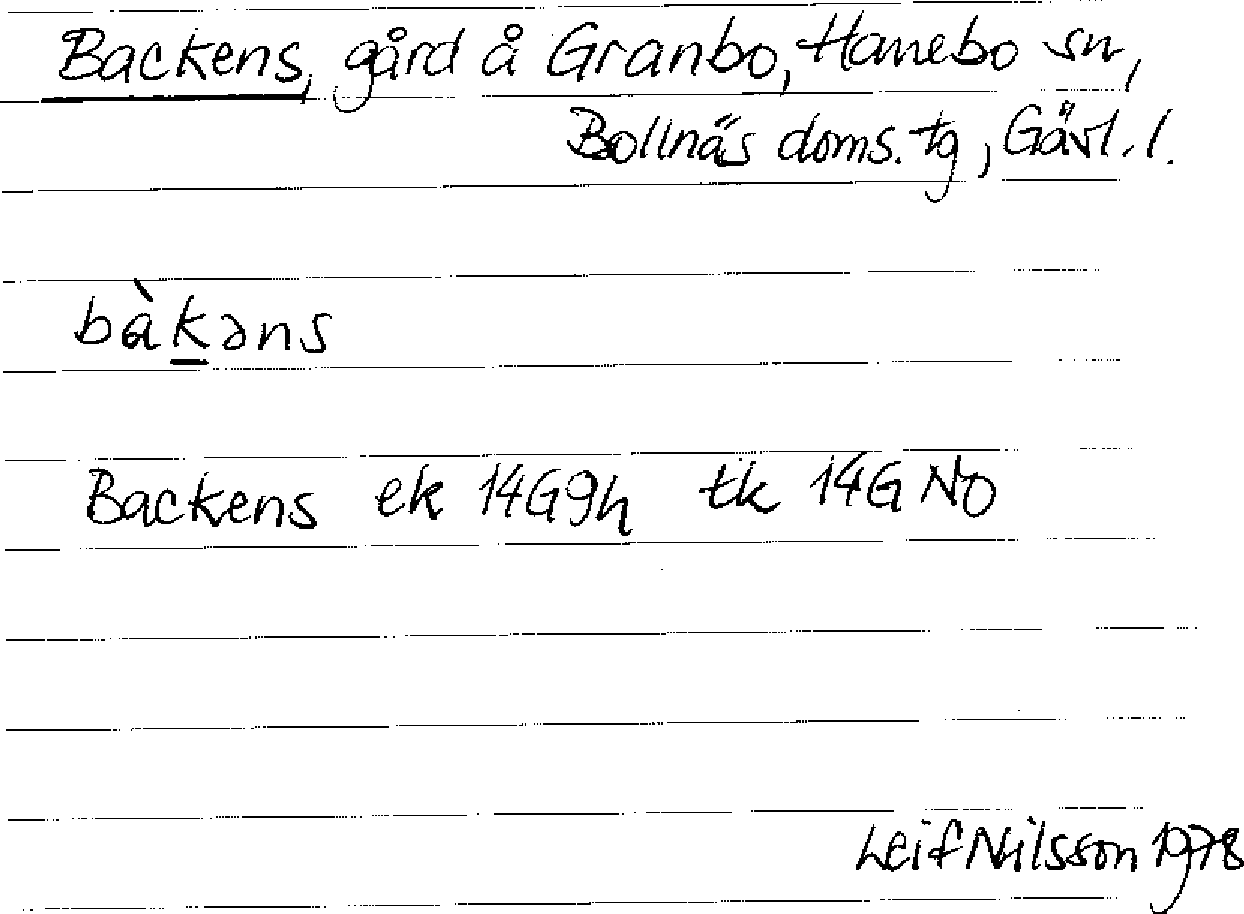 Backens, gård å Granbo, Hanebo sn,
Bollnäs doms. tg, Gävl. l.
bàkəns
Backens ek 14G9h tk 14G NO
Leif Nilsson 1978